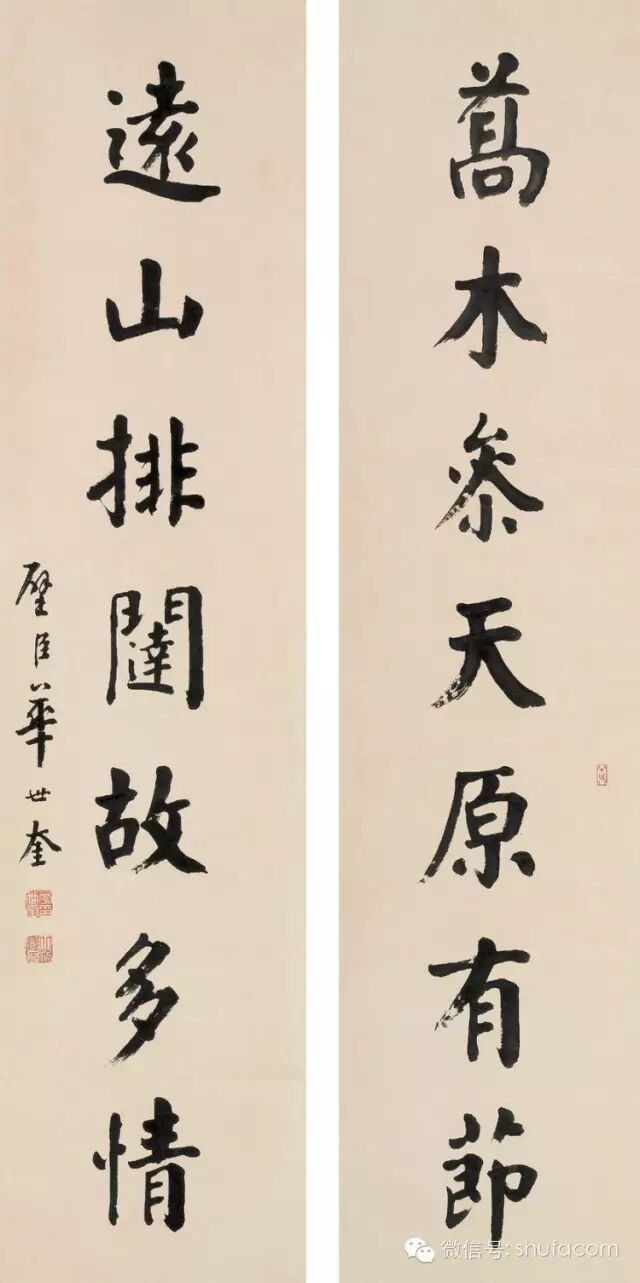 蒿木参天原有節
遠山排闥故多情
璧臣華世奎
微信号: shufacom